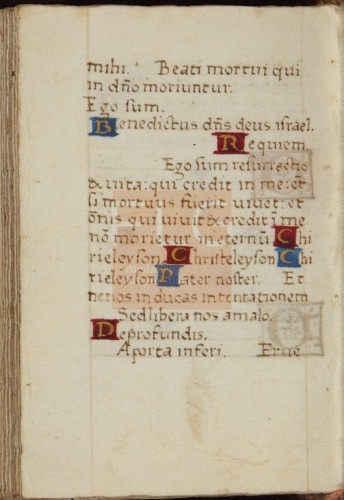 mihi. Beati mortui qui
in dño moriuntur.
Ego sum.
Benedictus dñs deus israel.
Requiem
Ego sum resurrectio
& vita: qui credit in me: et
si mortuus fuerit vivet: et
oñis qui vivit & credit ĩ me
nõ morietur in eternũ Chi
rieleyson Christeleyson Chi
trieleyson Pater noster. Et
ne nos inducas in tentationem
Sed libera nos amalo.
Deprofundis.
Aporta inferi. Erue